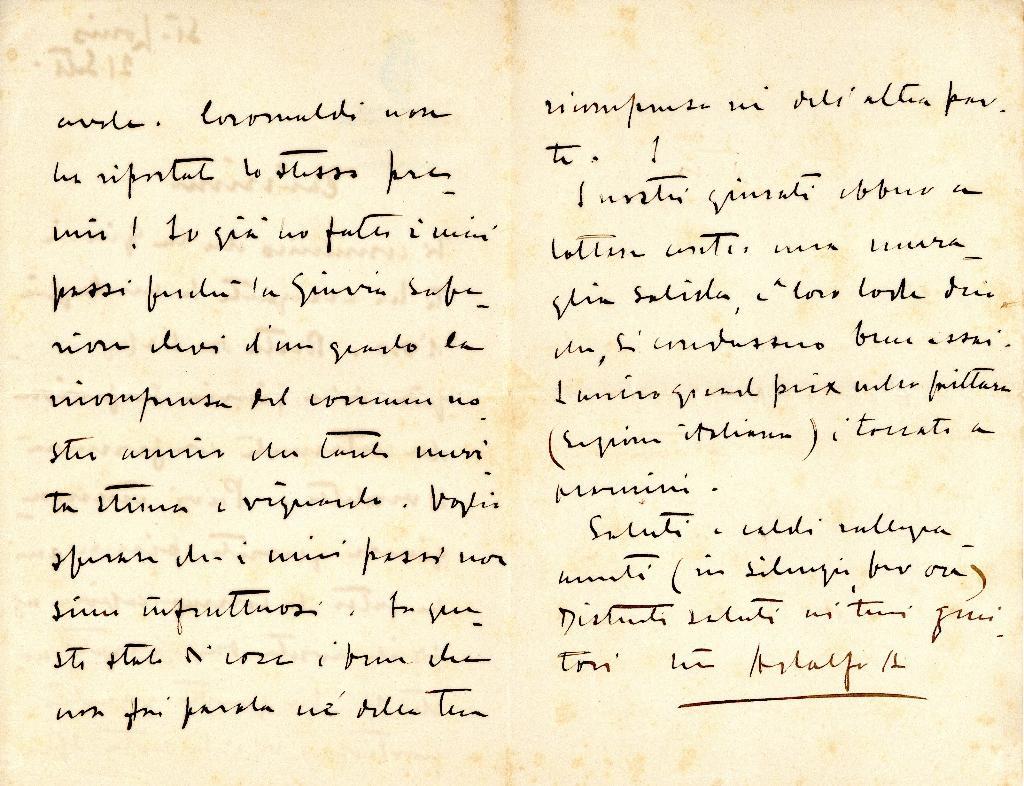 avola. Coromaldi non
ha riportato lo stesso pre-
mio! Io già ho fatto i miei
passi perché la Giuria supe-
riore elevi d'un grado la
ricompensa del comune no-
stro amico che tanto meri-
ta stima e riguardo. Voglio
sperare che i miei passi non
siano infruttuosi. In que-
sto stato di cose è bene che
non fai parola né della tua
ricompensa né dell'altra par-
te. !
I nostri giurati ebbero a
lottare contro una mura-
glia solida, e a loro lode dico
che, si condussero bene assai.
L'unico grand prix nella pittura
(Sezione italiana) è toccato a
Saluti e caldi rallegra-
menti (in silenzio, per ora)
Distinti saluti ai tuoi geni-
tori tuo Adolfo A
St. Louis
21 Sett.